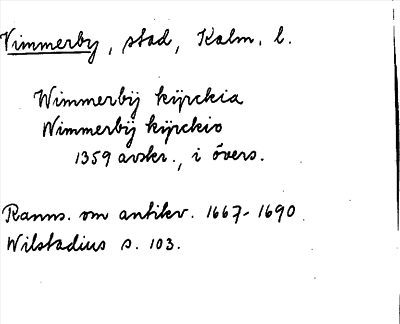 Vimmerby, stad, Kalm. l.
Wimmerbÿ kÿrckia
Wimmerbÿ kÿrckio
1359 avskr., i övers.
Ranns. om antikv. 1667-1690
Wilstadius s. 103.